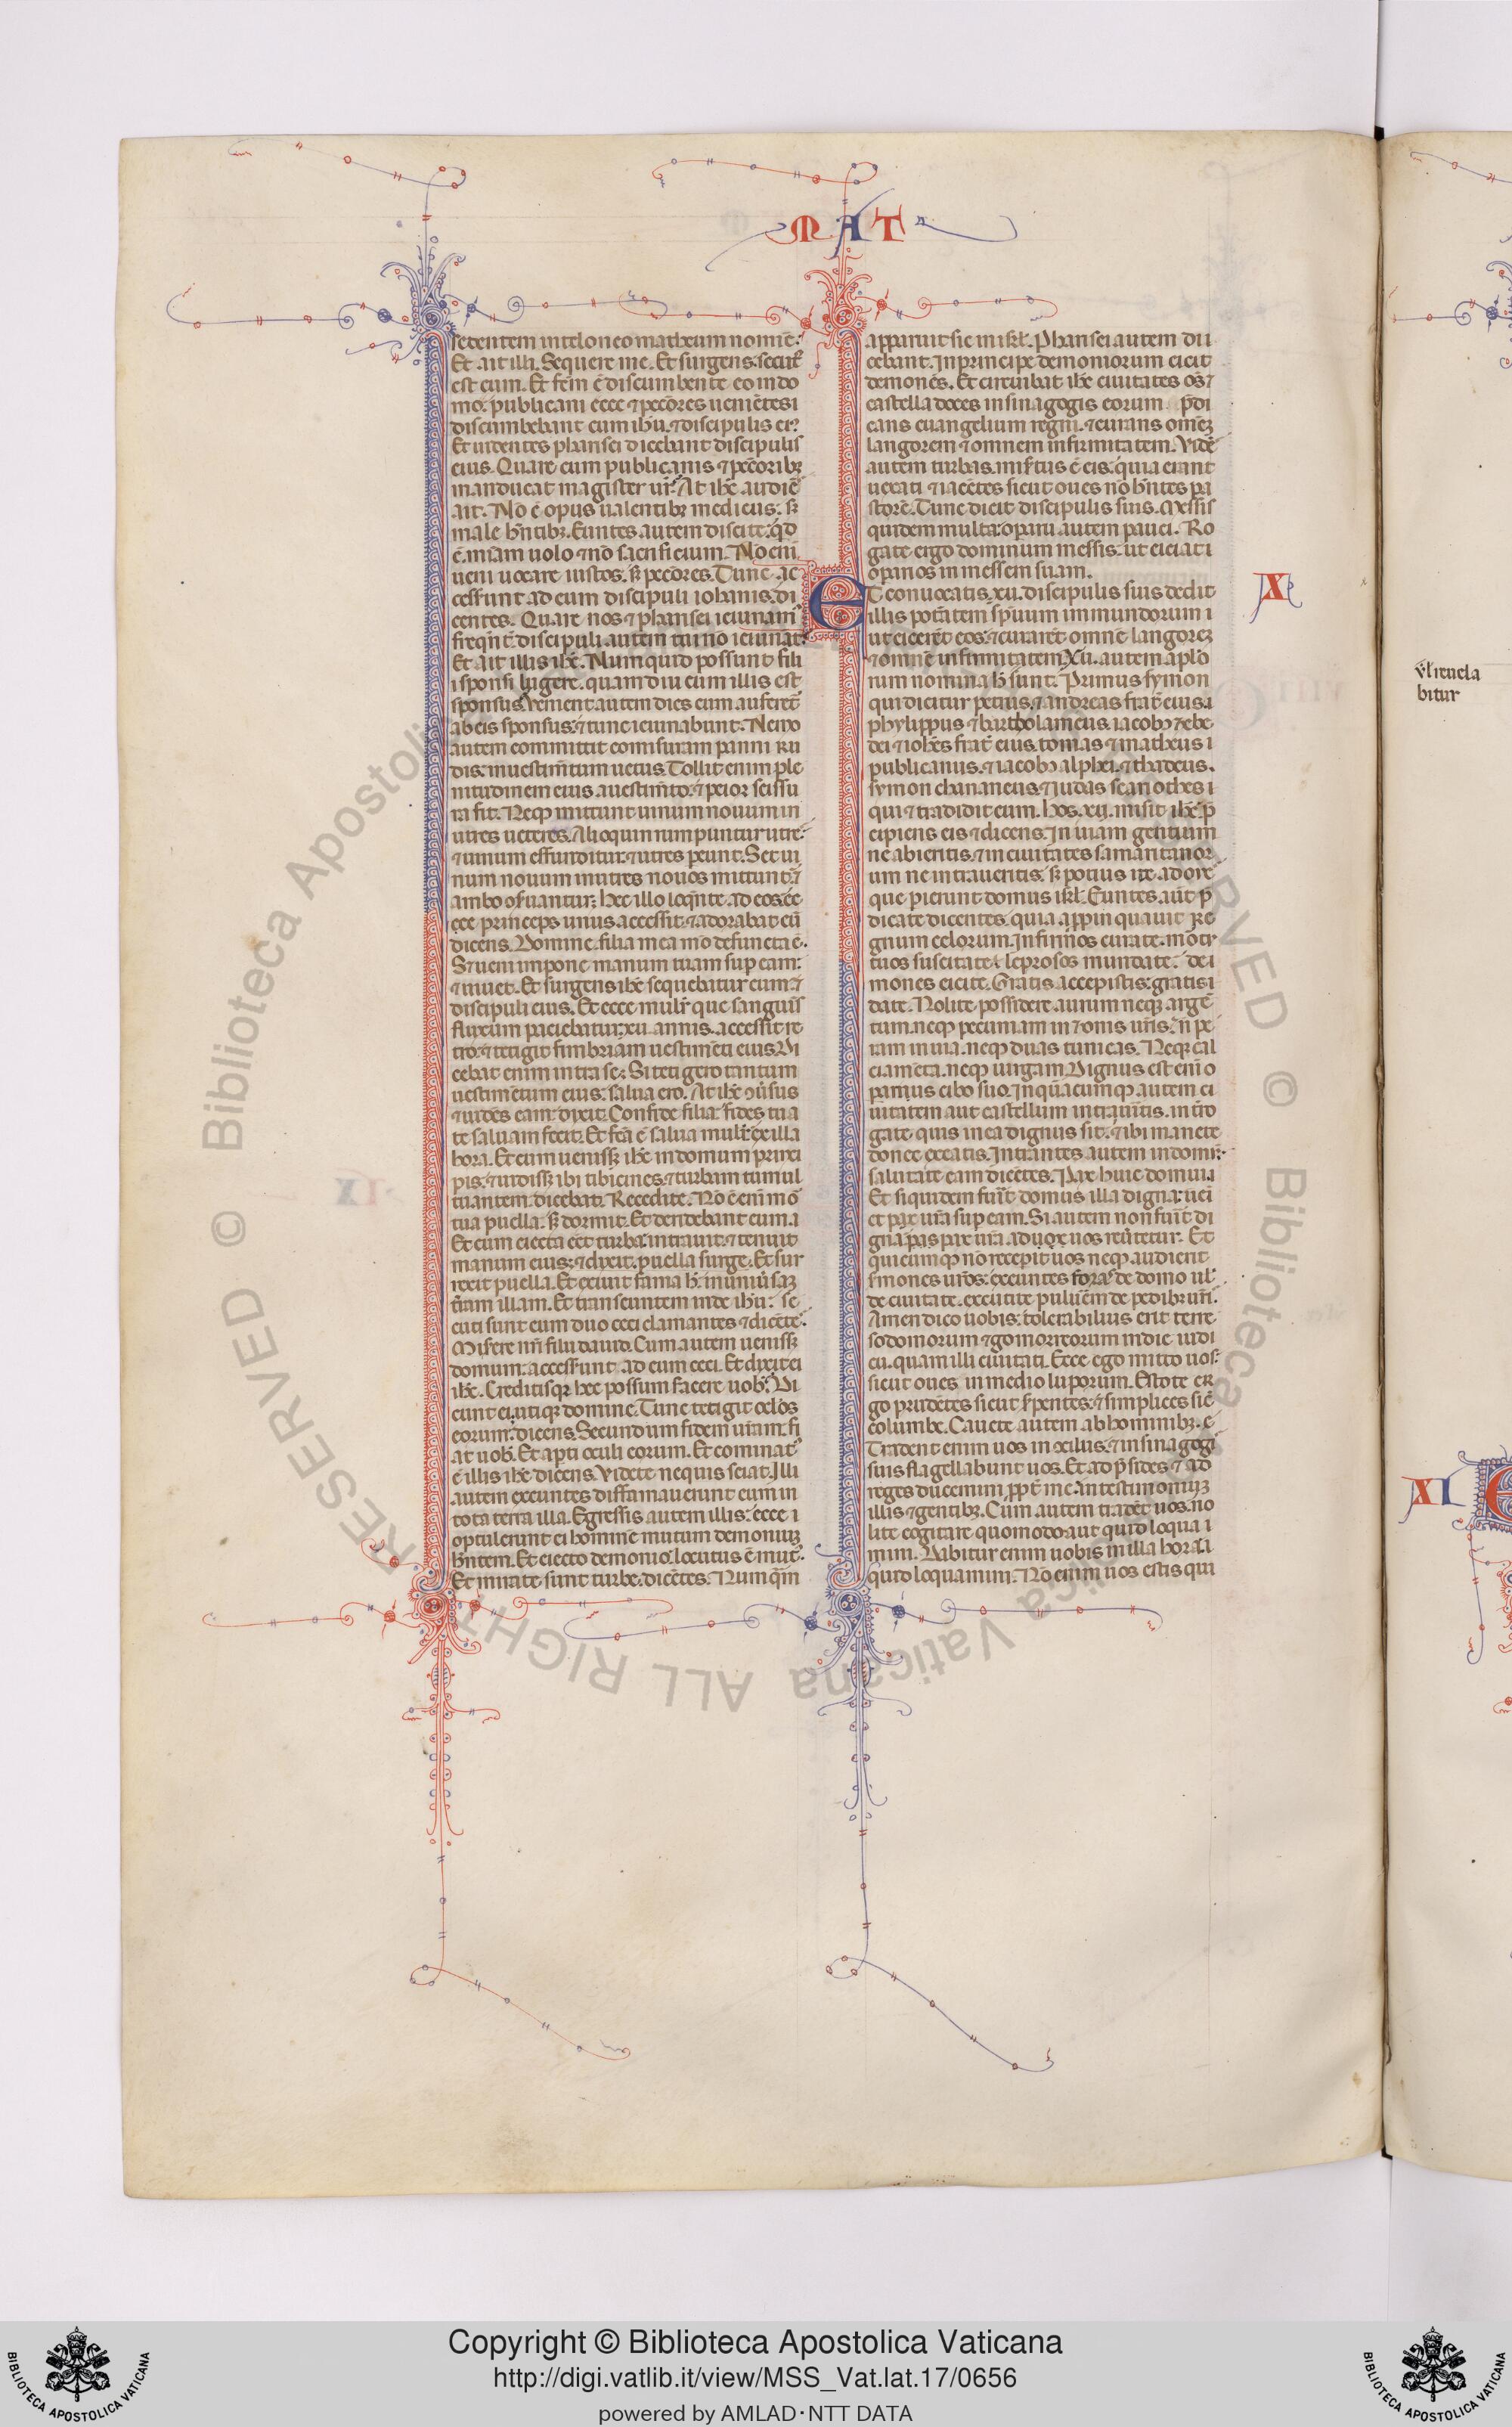 MAT
sedentem in teloneo matheum nomīe.
Et ait illi. Sequere me. Et surgens secut᷒
est eum. Et f̄cm ē discumbente eo in do
mo. publicani ecce ⁊ pccōres ueniētes i
discumbebant cum ihū. ⁊ discipulis ei᷒
Et uidentes pharisei dicebant discipulis
eius. Quare cum publicanis ⁊ pccōribꝫ
manducat magister ur̄. At ihc̄ audiēs
ait. Nō ē opus ualentibꝫ medicus. sꝫ
male hn̄tibꝫ. Euntes autem discite. qd̄
ē. mīam uolo ⁊ nō sacrificium. Nō eni
ueni uocare iustos. sꝫ pccōres. Tunc ac
cess̄unt ad eum discipuli iohanis. di
centes. Quare nos ⁊ pharisei ieiunam᷒
freqn̄t. discipuli autem tui nō ieiunāt.
Et ait illis ihc̄. Numquid possunt fili
i sponsi lugere. quamdiu cum illis est
sponsus. Venient autem dies cum auferet᷒
ab eis sponsus. ⁊ tunc ieiunabunt. Nemo
autem committit comisuram panni ru
dis. in uestim̄tum uetus. Tollit enim ple
nitudinem eius a uestim̄to. ⁊ peior scissu
ra fit. Neqꝫ mittunt uinum nouum in
utres ueteres. Alioquin rumpuntur utres
⁊ uinum effunditur. ⁊ utres peunt. Set ui
num nouum in utres nouos mittunt. ⁊
ambo ꝯseruantur. Hec illo loqn̄te ad eos. ec
ce princeps unus accessit. ⁊ adorabat eū
dicens. Domine filia mea mō defuncta ē.
Sꝫ ueni impone manum tuam sup eam.
⁊ uiuet. Et surgens ihc̄ sequebatur eum. ⁊
discipuli eius. Et ecce mulr̄ que sanguis
fluxum paciebatur. xii. annis. accessit re
tro. ⁊ tetigit fimbriam uestimēti eius. Di
cebat enim intra se. Si tetigero tantum
uestimētum eius. salua ero. At ihc̄ ꝯuersus
⁊ uidēs eam. dixit. Confide filia. fides tua
te saluam fecit. Et fcā ē salua mulr̄ ex illa
hora. Et cum uenissꝫ ihc̄ in domum princi
pis. ⁊ uidissꝫ ibi tibicines. ⁊ turbam tumul
tuantem. dicebat. Recedite. Nō ē enī mor
tua puella. sꝫ dormit. Et deridebant eum.
Et cum eiecta eēt turba. intrauit. ⁊ tenuit
manum eius. ⁊ dixit. puella surge. Et sur
rexit puella. Et exiuit fama h̄. in uniūsaꝫ
tr̄am illam. Et transeuntem inde ihū. se
cuti sunt eum duo ceci clamantes ⁊ dicētes.
Misere nri fili dauid. Cum autem uenissꝫ
domum. access̄unt ad eum ceci. Et dixit ei
ihc̄. Creditis qꝫ hec possum facere uob. Di
cunt ei. utiqꝫ domine. Tunc tetigit oclōs
eorum. dicens. Secundum fidem urām. fi
at uob. Et apti oculi eorum. Et cominat᷒
ē illis ihc̄ dicens. Videte ne quis sciat. Illi
autem exeuntes diffamauerunt eum in
tota terra illa. Egressis autem illis. ecce i
optulerunt ei hominē mutum demoniuꝫ
hn̄tem. Et eiecto demonio. locutus ē mut᷒.
Et mirate sunt turbe. dicētes. Numqm̄
apparuit sic in isrl̄. Pharisei autem dii
cebant. In principe demoniorum eicit
demonēs. Et circuibat ihc̄ ciuitates oms̄ ⁊
castella docēs in sinagogis eorum. p̄di
cans euangelium regni. ⁊ curans omēꝫ
langorem ⁊ omnem infirmitatem. Vidēs
autem turbas. misr̄tus ē eis. quia erant
uexati ⁊ iacētes sicut oues nō hn̄tes pa
storē. Tunc dicit discipulis suis. Messis
quidem multa. operarii autem pauci. Ro
gate ergo dominum messis. ut eiciat i
operarios in messem suam.
X
ET conuocatis. xii. discipulis suis dedit
illis potātem spūum immundorum i
ut eicerēt eos. ⁊ curarēt omnē langoreꝫ
⁊ omnē infirmitatem. Xii. autem aplō
rum nomina h̄ sunt. Primus symon
qui dicitur petrus. ⁊ andreas frat̄ eius. i
phylippus ⁊ bartholameus. iacob᷒ ⁊ebe
dei ⁊ iohēs frat̄ eius. tomas ⁊ matheus i
publicanus. ⁊ iacob᷒ alphei. ⁊ thadeus.
symon chananeus. ⁊ iudas scariothes i
qui ⁊ tradidit eum. Hos. xii. misit ihc̄. p̄
cipiens eis ⁊ dicens. In uiam gentium
ne abieritis. ⁊ in ciuitates samaritanor
um ne intraueritis. sꝫ potius ite ad oues
que pierunt domus isrl̄. Euntes aūt p̄
dicate dicentes. quia appinquauit re
gnum celorum. Infirmos curate. mor
tuos suscitate. leprosos mundate. de i
mones eicite. Gratis accepistis. gratis i
date. Nolite possidere aurum neqꝫ argē
tum. neqꝫ pecuniam in ⁊onis uris̄. ñ pe
ram in uia. neqꝫ duas tunicas. Neqꝫ cal
ciam̄eta. neqꝫ uirgam. Dignus est enī o
perarius cibo suo. In quācumqꝫ autem ci
uitatem aut castellum intraūitis. intro
gate. quis in ea dignus sit. ⁊ ibi manete
donec exeatis. Intrantes autem in domū.
salutate eam dicētes. Pax huic domui.
Et siquidem fuīt domus illa digna. ueī
et pax urā sup eam. Si autem non fuīt di
gna. pax urā ad uos reūtetur. Et
quicumqꝫ nō recepit uos. neqꝫ audient
smones uros̄. exeuntes foras de domo ul̄
de ciuitate. excutite puluēm de pedibꝫ urī.
Amen dico uobis. tolerabilius erit terre
sodomorum ⁊ gomorreorum in die iudi
cii. quam illi ciuitati. Ecce ego mitto uos.
sicut oues in medio luporum. Estote er
go prudētes sicut spentes. ⁊ simplices sic̄
columbe. Cauete autem ab hominibꝫ.
Tradent enim uos in ɔciliis. ⁊ in sinagogi
suis flagellabunt uos. Et ad p̄sides ⁊ ad
reges ducemini ppt̄ me. in testimoniuꝫ
illis ⁊ gentibꝫ. Cum autem tradēt uos. no
lite cogitare quomodo aut quid loqua i
mini. Dabitur enim uobis in illa hora. i
quid loquamini. Nō enim uos estis qui
ul̄ reuela
bitur
XI
Copyright © Biblioteca Apostolica Vaticana
http://digi.vatlib.it/view/MSS_Vat.lat.17/0656
powered by AMLAD·NTT DATA
BIBLIOTECA APOSTOLICA VATICANA
BIBLIOTECA APOSTOLICA VATICANA
© Biblioteca Apostolica Vaticana ALL RIGHTS RESERVED